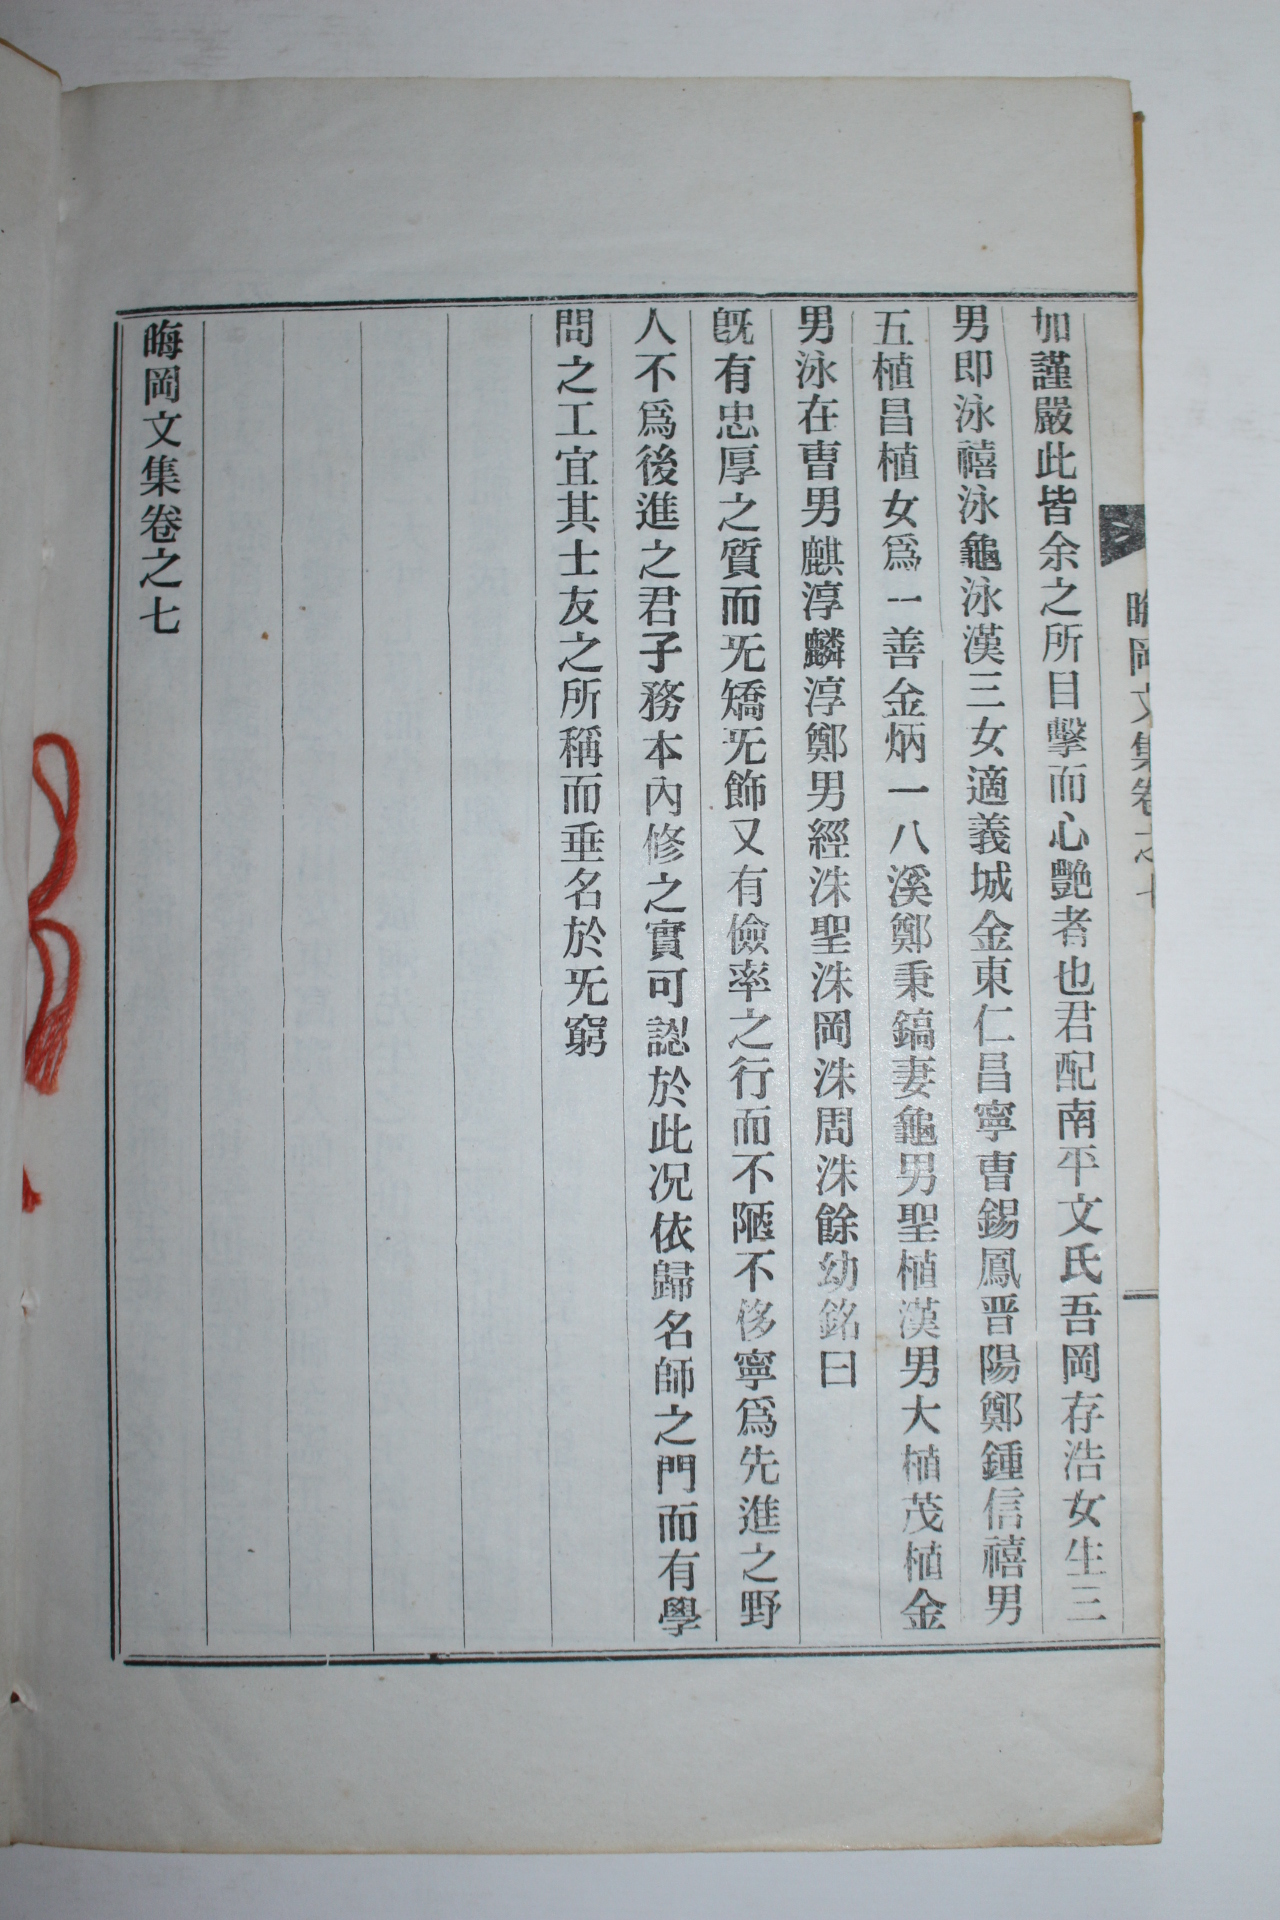 晦岡文集卷之七
加謹嚴此皆余之所目擊而心艷者也君配南平文氏吾岡存浩女生三
男即泳禧泳龜泳漢三女適義城金東仁昌寧曺錫鳳晋陽鄭鍾信禧男
五植昌植女爲一善金炳一八溪鄭秉鎬妻龜男聖植漢男大植茂植金
男泳在曺男麒淳麟淳鄭男經洙聖洙岡洙周洙餘幼銘曰
旣有忠厚之質而旡矯旡飾又有儉率之行而不陋不侈寧爲先進之野
人不爲後進之君子務本內修之實可認於此况依歸名師之門而有學
問之工宜其士友之所稱而垂名於旡窮
晦岡文集卷之七